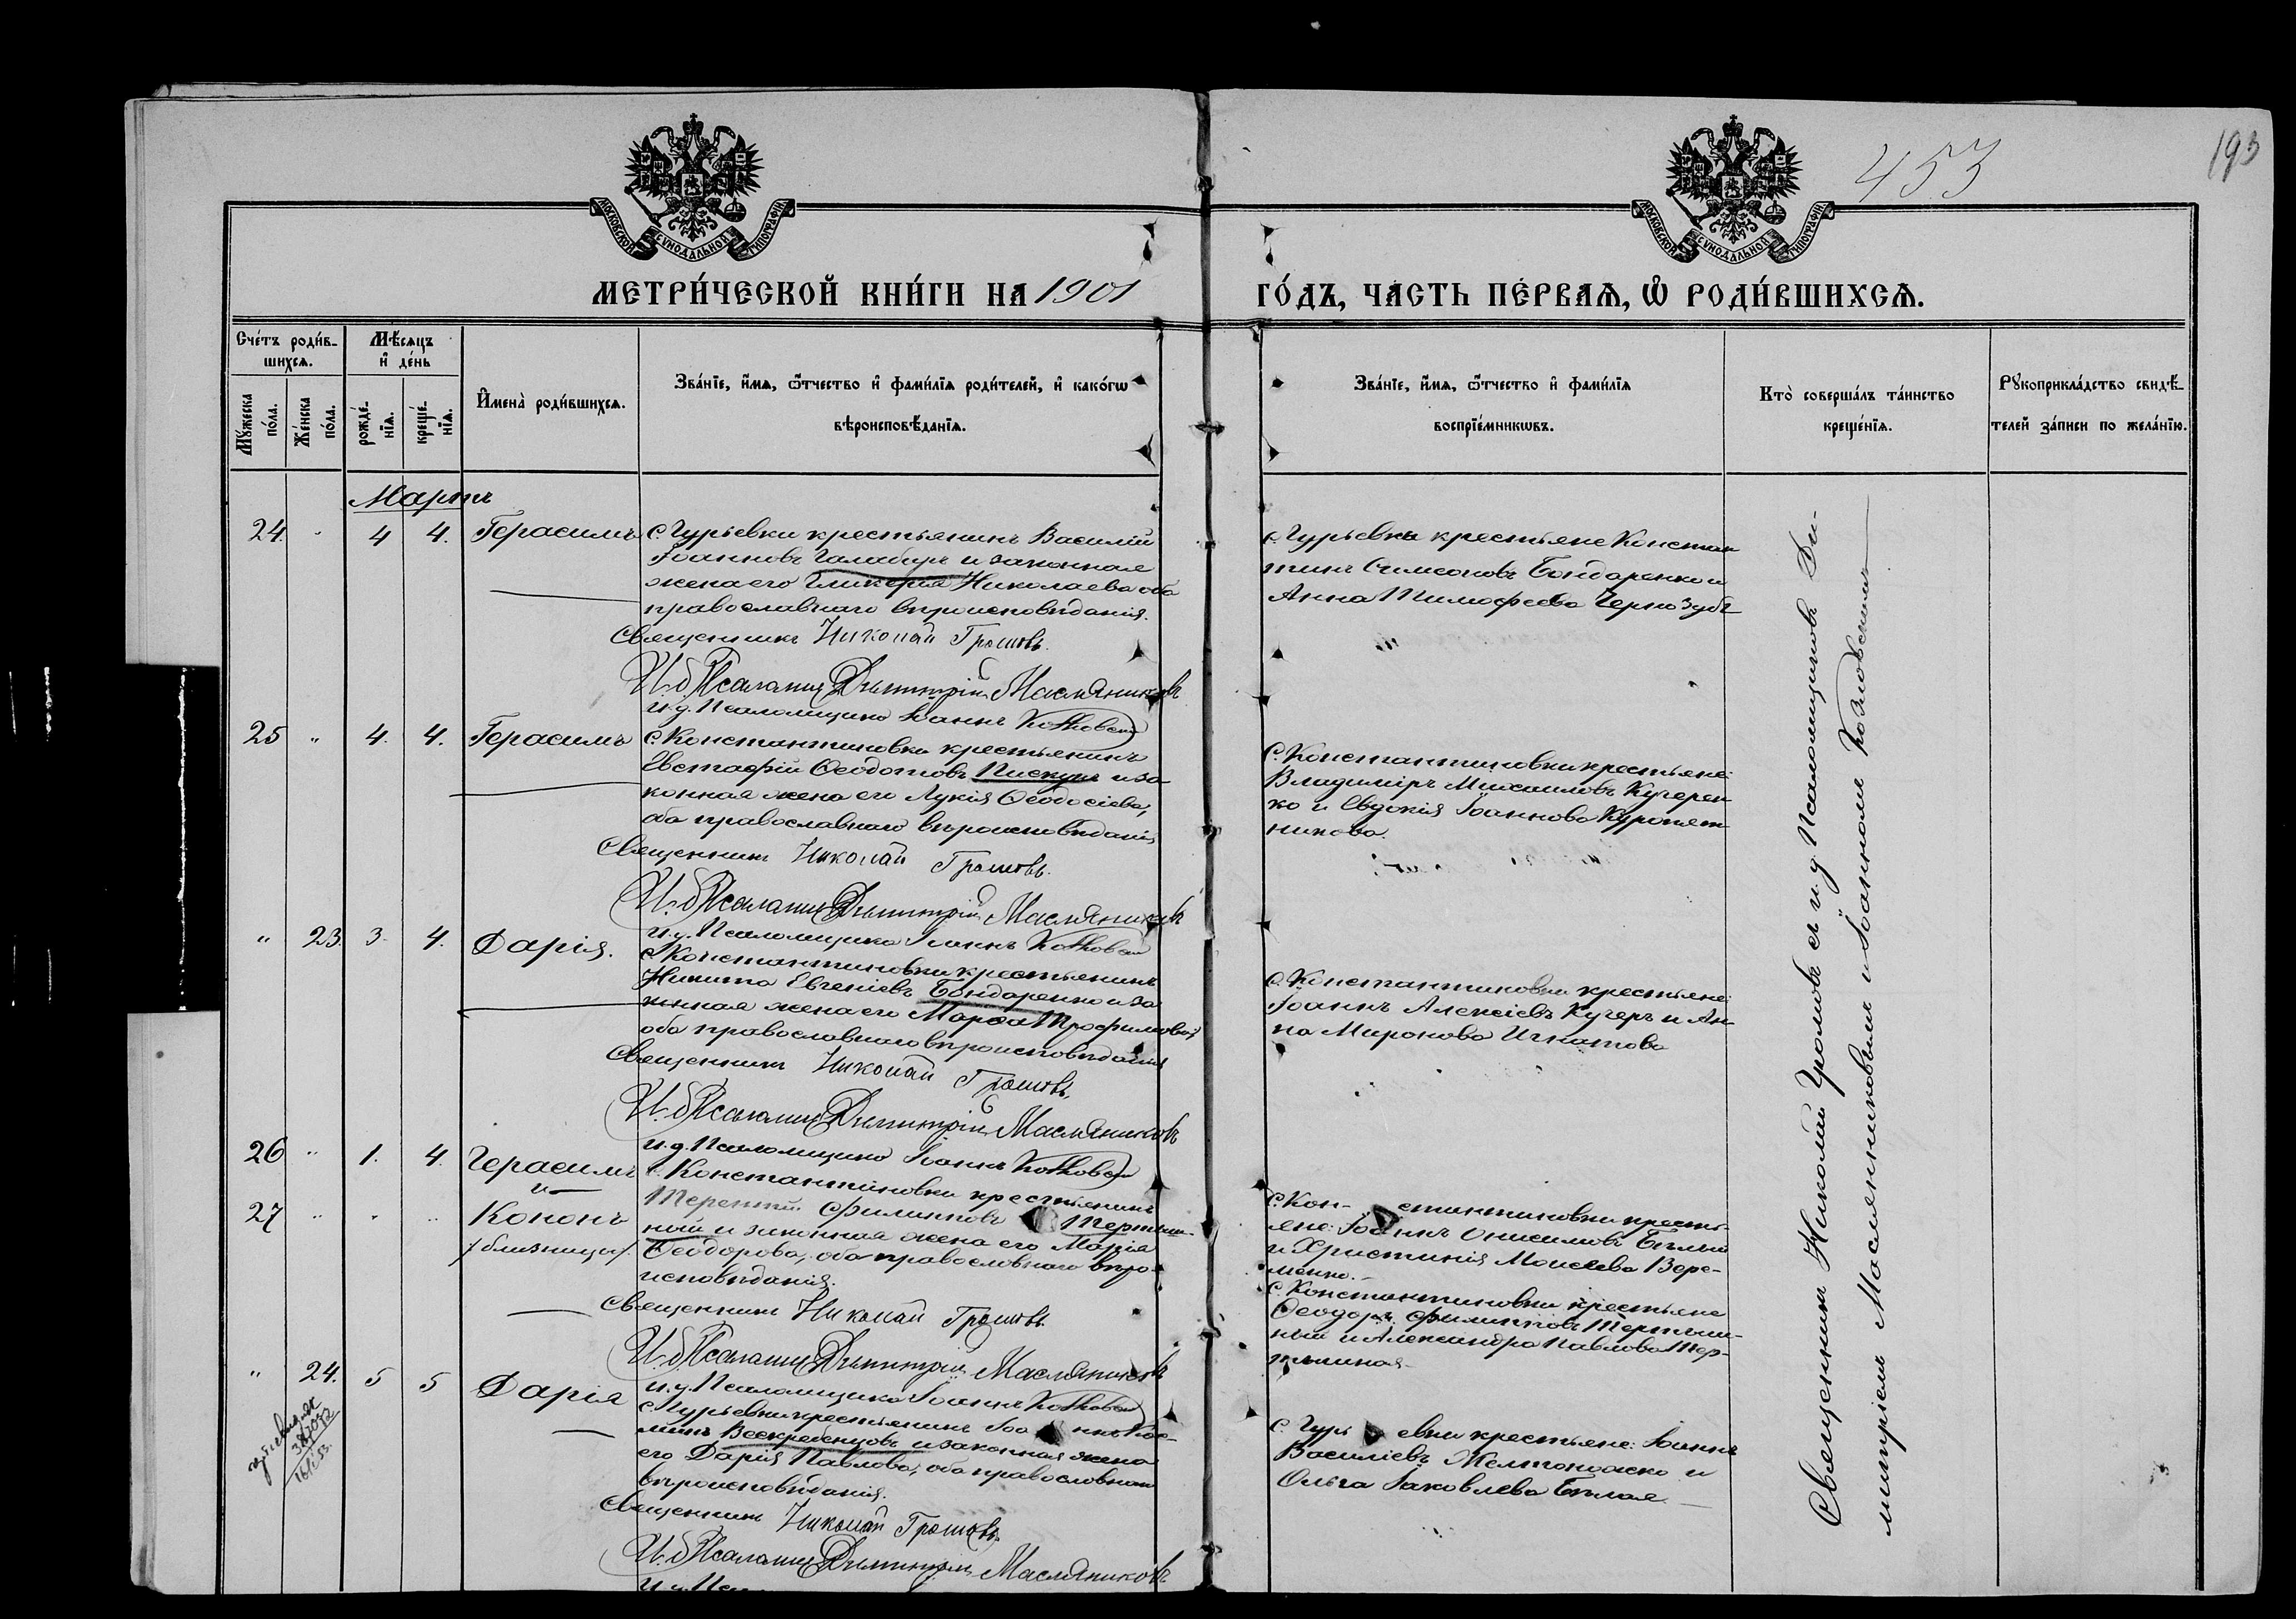 453
193
МОСКОВСКОЙ СѴНОДАЛЬНОЙ ТИПОГРАФІИ
МОСКОВСКОЙ СѴНОДАЛЬНОЙ ТИПОГРАФІИ
МЕТРИ́ЧЕСКОЙ КНИ́ГИ НА 1901
ГО́ДЪ, ЧА́СТЬ ПЕ́РВАѦ, Ѡ҆ РОДИ́ВШИХСѦ.
Сче́тъ роди́в-
шихсѧ.
Мꙋ́жеска по́ла.
Же́нска по́ла.
Мѣ́сѧцъ
и҆ де́нь
рожде́-
нїѧ.
креще́-
нїѧ.
И҆мена̀ роди́вшихсѧ.
Зва́нїе, и҆́мѧ, ѻ҆́тчество и҆ фами́лїѧ роди́телей, и҆ како́гѡ
вѣроисповѣ́данїѧ.
Зва́нїе, и҆́мѧ, ѻ҆́тчество и҆ фами́лїѧ
воспрїе́мникѡвъ.
Кто̀ соверша́лъ та́инство
креще́нїѧ.
Рꙋкоприкла́дство свидѣ́-
телей за́писи по жела́нїю.
Мартъ
24. " 4 4. Герасимъ
с. Гурьевки крестьянинъ Василій
Іоанновъ Галабур и законная
жена его Гликерія Николаева оба
православнаго вѣроисповѣданія.
Священникъ Николай Громовъ.
И. д. Псаломщ Димитрій Масляниковъ
и. д. Псаломщика Іоаннъ
с. Гурьевки крестьяне Констан
тинъ Симеоновъ Бондаренко и
Анна Тимофеева Чернозубъ
25 " 4. 4. Герасимъ
с. Константиновки крестьянинъ
Евстафій Ѳеодотовъ Пискунъ и за
конная жена его Лукія Ѳеодосіева,
оба православнаго вѣроисповѣданія
Священникъ Николай Громовъ.
И. д. Псаломщ Димитрій Масляниковъ
и. д. Псаломщика Іоаннъ
с. Константиновки крестьяне:
Владиміръ Михаиловъ Кучерен
ко и Евдокія Іоаннова Куропят
никова.
" 23. 3. 4. Дарія.
с. Константиновки крестьянинъ
Никита Евгеніевъ Бондаренко и за
жена его Марѳа Трофимова,
оба православнаго вѣроисповѣданія
Священникъ Николай Громовъ,
И. д. Псаломщ Димитрій Масляниковъ
и. д. Псаломщика Іоаннъ
с. Константиновки крестьяне:
Іоаннъ Алексіевъ Кучеръ и Ан
на Миронова Игнатова
26 " 1. 4. Герасимъ
и
27 " " " Кононъ
/близнецы/.
с. Константиновки крестьянинъ
Терентій Филипповъ Тертыш-
ный и законная жена его Марія
Ѳеодорова, оба православнаго вѣро-
исповѣданія.
Священникъ Николай Громовъ.
И. д. Псаломщ Димитрій Масляниковъ
и. д. Псаломщика Іоаннъ
с. Кон- стантиновки кресть-
яне: Іоаннъ Онисимовъ Бѣлый
и Христинія Моисеева Вере-
менко.
с. Константиновки крестьяне
Ѳеодоръ Филипповъ Тертыш-
ный и Александра Павлова Тер-
тышная.
" 24. 5 5 Дарія
с. Гурьевки крестьянинъ Іоаннъ Кос-
минъ Воскресенцовъ и законная жена
его Дарія Павлова, оба православнаго
вѣроисповѣданія.
Священникъ Николай Громовъ.
И. д. Псаломщ Димитрій Масляниковъ
с. Гурь евки крестьяне: Іоаннъ
Василіевъ Желтоножко и
Ольга Іаковлева Бѣлая.
Священникъ Николай Громовъ съ и. д. Псаломщиковъ Ди-
митріемъ Масленниковымъ и Іоанномъ